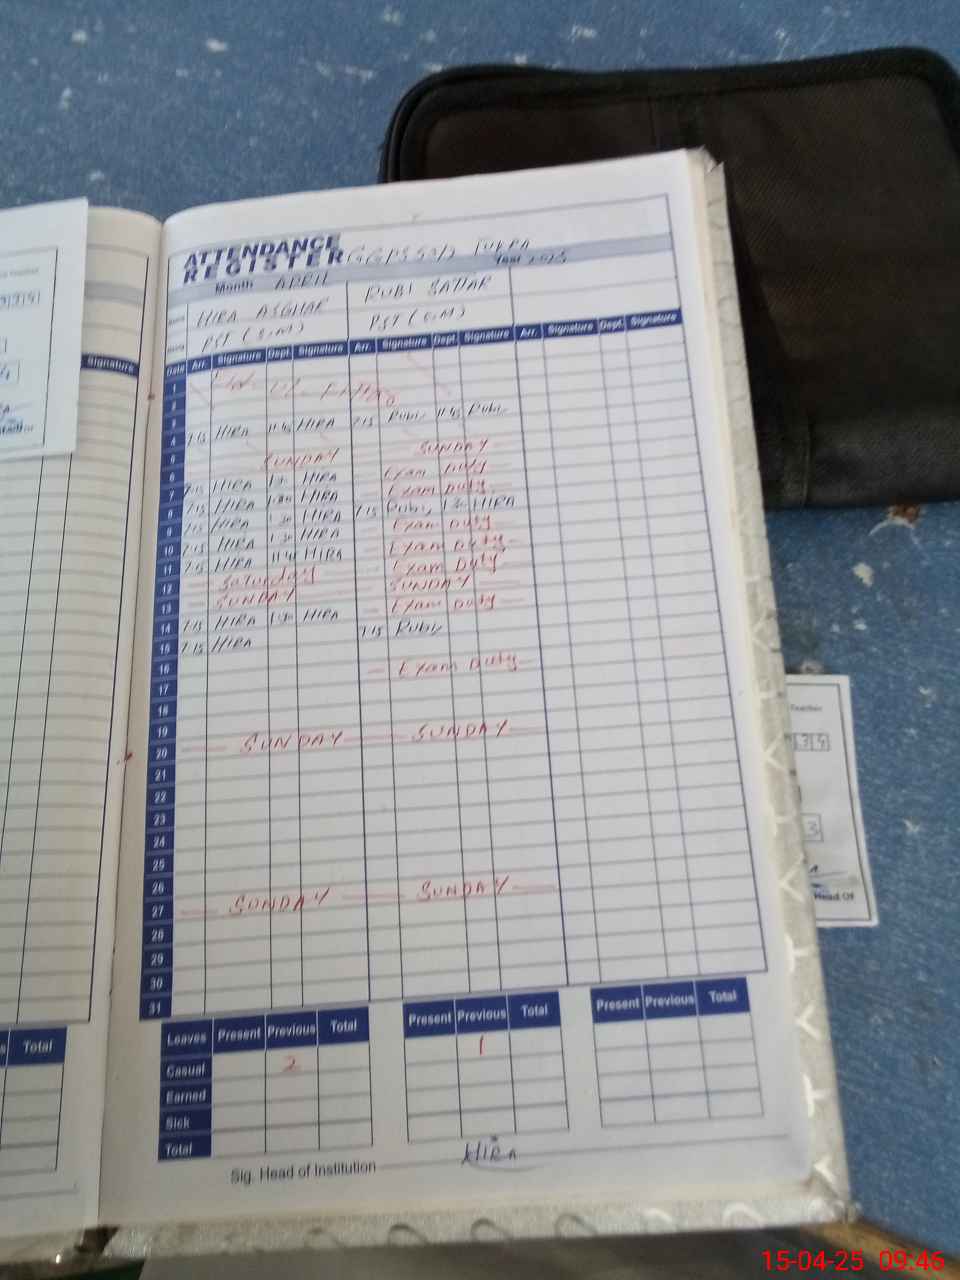 ATTENDANCE
REGISTER
Month APRIL Year 2025
Name HIRA ASGHAR RUBI SATTAR
PST (S.M) PST (S.M)
Date Arr. Signature Dept. Signature Arr. Signature Dept. Signature Arr. Signature Dept. Signature
1
2
3
4 7:15 HIRA 11:45 HIRA 7:15 Rubi 11:45 Rubi
5
6 SUNDAY SUNDAY
7 7:15 HIRA 1:30 HIRA Exam Duty
8 7:15 HIRA 1:30 HIRA Exam Duty
9 7:15 HIRA 1:30 HIRA 7:15 Rubi 1:30 HIRA
10 7:15 HIRA 1:30 HIRA Exam Duty
11 7:15 HIRA 11:45 HIRA Exam Duty
12 Saturday Exam Duty
13 SUNDAY SUNDAY
14 7:15 HIRA 1:30 HIRA Exam Duty
15 7:15 HIRA 7:15 Rubi
16
17 Exam Duty
18
19
20 SUNDAY SUNDAY
21
22
23
24
25
26
27 SUNDAY SUNDAY
28
29
30
31
Leaves Present Previous Total Present Previous Total Present Previous Total
Casual 2 1
Earned
Sick
Total
Sig. Head of Institution HIRA
Signature
Total
Teacher
3
Head Of
15-04-25 09:46